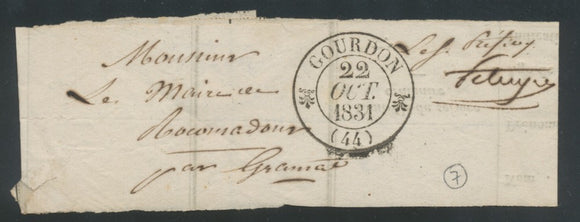 Monsieur
Le Maire de
Rocomadour
par Gramat
GOURDON
22
OCT.
1831
(44)
Le S. Préfet
7